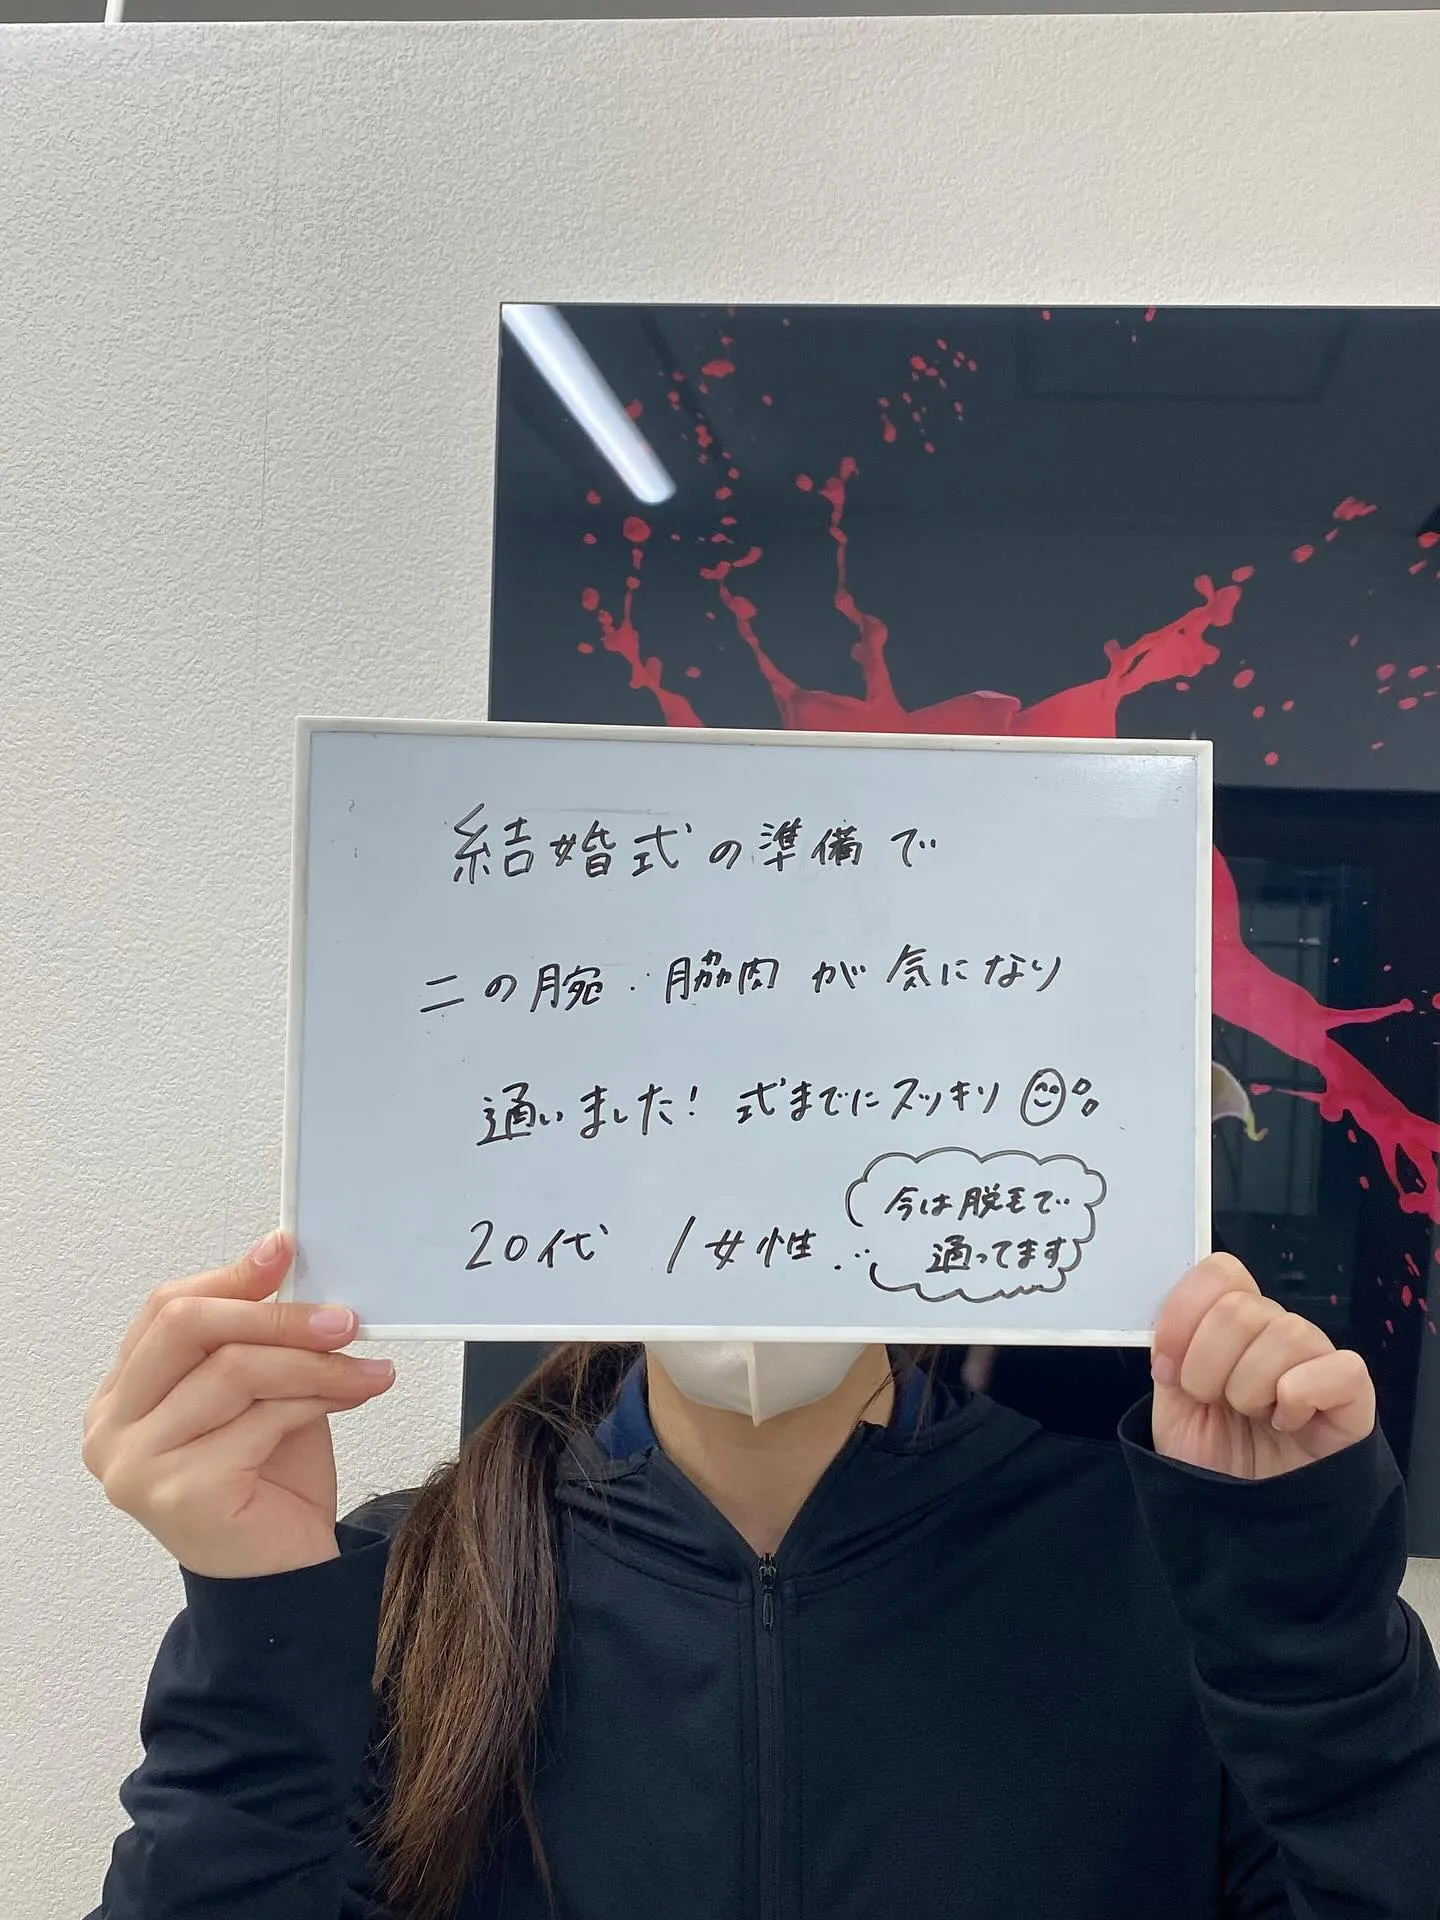 結婚式の準備で
二の腕・脇肉が気になり
通いました! 式までにスッキリ
20代 /女性...
今は脱毛で
通ってます